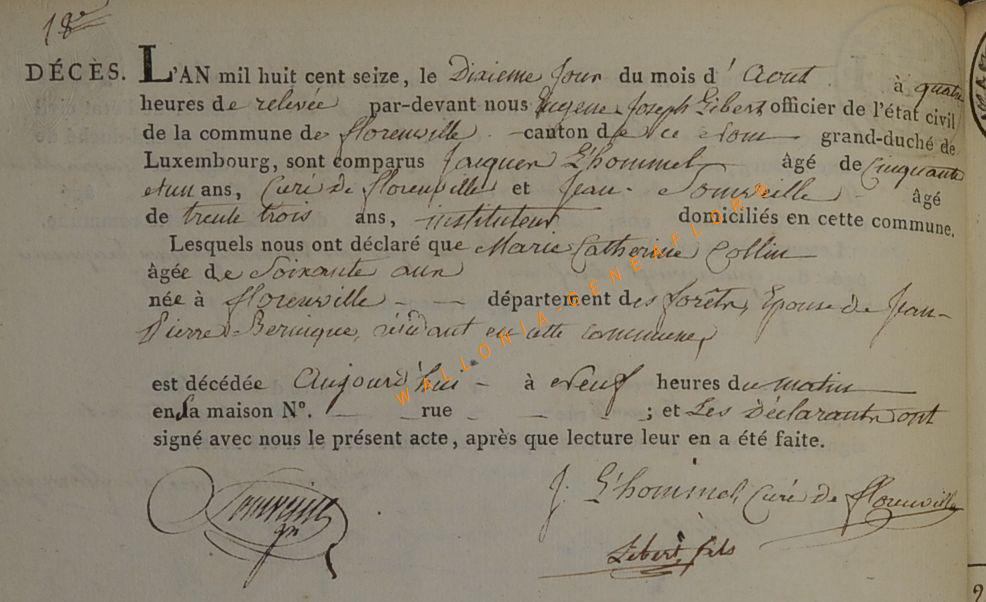 18e
DÉCÈS. L'AN mil huit cent seize, le Dixieme Jour du mois d' Aout à quatre
heures de relevée par-devant nous Eugene Joseph Gibert officier de l'état civil
de la commune de florenville canton de ce Nom grand-duché de
Luxembourg, sont comparus Jacques L'hommel âgé de Cinquante
et un ans, Curé de florenville et Jean Tourveille âgé
de trente trois ans, instituteur domiciliés en cette commune.
Lesquels nous ont déclaré que Marie Catherine Collin
âgée de Soixante ans
née à florenville département des forêts, Epouse de Jean
Pierre Bernique, résidant en cette commune,
est décédée Aujourd'hui à Neuf heures du matin
en sa maison N°. rue ; et Les Déclarants ont
signé avec nous le présent acte, après que lecture leur en a été faite.
J. L'hommel, Curé de florenville
fils
WALLONIA-GENEAFLORE